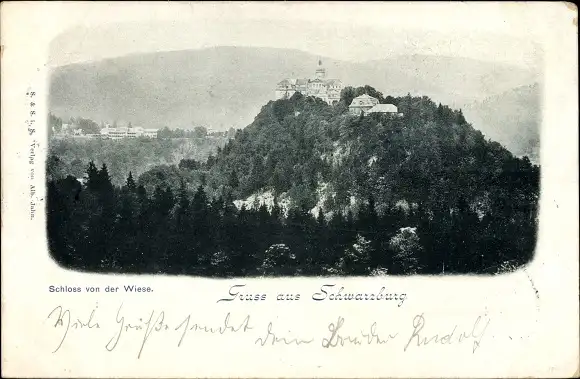 S. & S. i. S. Verlag von Alb. Jahn.
Schloss von der Wiese.
Gruss aus Schwarzburg
Viele Grüße sendet dein Bruder Rudolf.